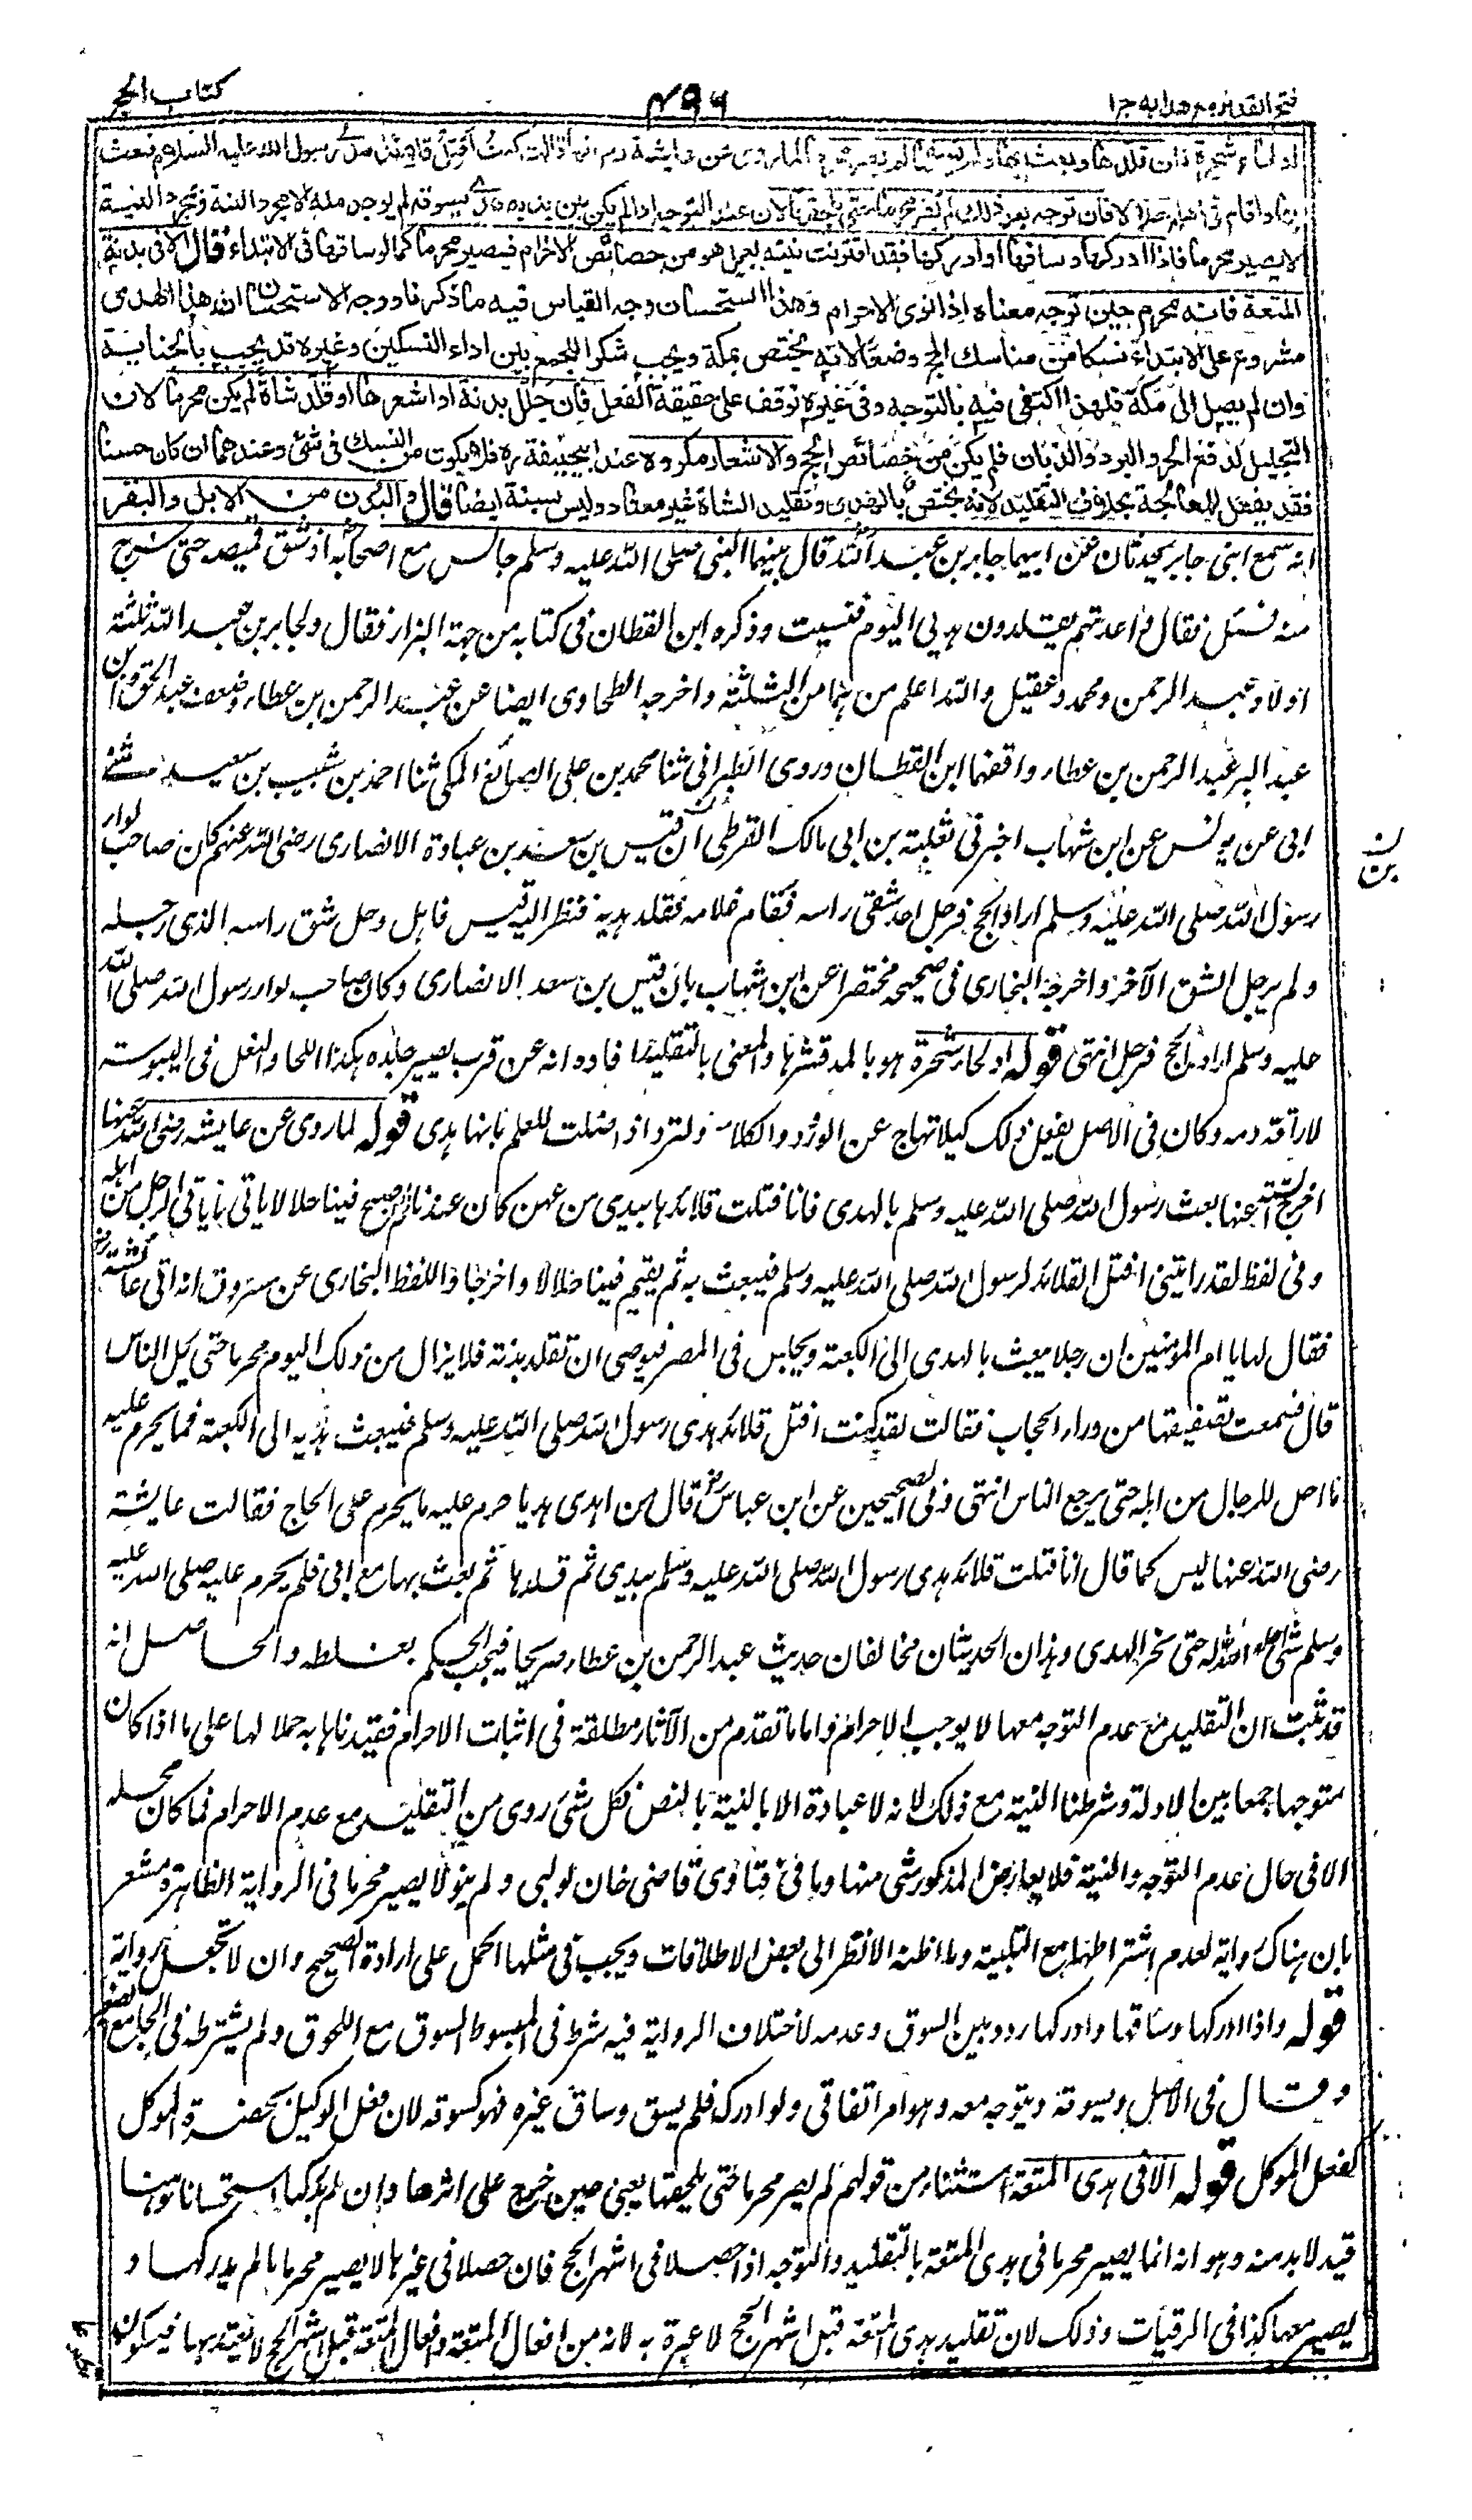 فتح القدير مع هدايه ج ١
٤٩٦
كتاب الحج
او لحاء شجرة فان قلدها وبعث بها ولم يسقها لم يصر محرما لما روى عن عايشة رض انها قالت كنت أفتل قلائد هدى رسول الله عليه السلام فبعث
بها واقام فى اهله حلالا فان توجه بعد ذلك لم يصر محرما حتى يلحقها لان عند التوجه اذا لم يكن بين يديه هدى يسوقه لم يوجد منه الا مجرد النية وبمجرد النية
لا يصير محرما فاذا ادركها وساقها او ادركها فقد اقترنت نيته بعمل هو من خصائص الاحرام فيصير محرما كما لو ساقها فى الابتداء قال الا فى بدنة
المتعة فانه محرم حين توجه معناه اذا نوى الاحرام وهذا استحسان وجه القياس فيه ما ذكرنا ووجه الاستحسان ان هذا الهدى
مشروع على الابتداء نسكا من مناسك الحج وضعا لانه يختص بمكة ويجب شكرا للجمع بين اداء النسكين وغيره قد يجب بالجناية
وان لم يصل الى مكة فلهذا اكتفى فيه بالتوجه وفى غيره توقف على حقيقة الفعل فان جلل بدنة او اشعرها او قلد شاة لم يكن محرما لان
التجليل لدفع الحر والبرد والذبان فلم يكن من خصائص الحج والاشعار مكروه عند ابيحنيفة ره فلا يكون من النسك فى شئ وعندهما ان كان حسنا
فقد يفعل للمعالجة بخلاف التقليد لانه يختص بالهدى وتقليد الشاة غير معتاد وليس بسنة ايضا قال والبدن من الابل والبقر
انه سمع ابنى جابر يحدثان عن ابيهما جابر بن عبد الله قال بينما النبى صلى الله عليه وسلم جالس مع اصحابه اذ شق قميصه حتى خرج
منه فسئل فقال واعدتهم يقلدون هديى اليوم فنسيت وذكره ابن القطان فى كتابه من جهة البزار فقال ولجابر بن عبد الله ثلثة
اولاد عبد الرحمن ومحمد وعقيل والله اعلم من هما من الثلثة واخرجه الطحاوى ايضا عن عبد الرحمن بن عطاء وضعف عبد الحق وابن
عبد البر عبد الرحمن بن عطاء ووافقهما ابن القطان وروى الطبرانى ثنا محمد بن على الصائغ المكى ثنا احمد بن شبيب بن سعيد ثنى
ابى عن يونس عن ابن شهاب اخبرنى ثعلبة بن ابى مالك القرظى ان قيس بن سعد بن عبادة الانصارى رضى الله عنهم كان صاحب لواء
رسول الله صلى الله عليه وسلم اراد الحج فرجل احد شقى راسه فقام غلامه فقلد هديه فنظر اليه قيس فاهل وحل شق راسه الذى رجله
ولم يرجل الشق الآخر واخرجه البخارى فى صحيحه مختصرا عن ابن شهاب بان قيس بن سعد الانصارى وكان صاحب لواء رسول الله صلى الله
عليه وسلم اراد الحج فرجل انتهى قوله او لحاء شجرة هو بالمد قشرها والمعنى بالتقليد افاده انه عن قرب يصير جلده بهكذا اللحا والنعل فى اليبوسة
لاراقة دمه وكان فى الاصل يفعل ذلك كيلا تهاج عن الورد والكلاء ولترد اذا ضلت للعلم بانها هدى قوله لما روى عن عايشة رضى الله عنها
اخرج الستة عنها بعث رسول الله صلى الله عليه وسلم بالهدى فانا فتلت قلائدها بيدى من عهن كان عندنا ثم اصبح فينا حلالا ياتى ما ياتى الرجل من اهله
وفى لفظ لقد رايتنى افتل القلائد لرسول الله صلى الله عليه وسلم فيبعث به ثم يقيم فينا حلالا واخرجا واللفظ للبخارى عن مسروق انه اتى عائشة رض
فقال لها يا ام المؤمنين ان رجلا يبعث بالهدى الى الكعبة ويجلس فى المصر فيوصى ان تقلد بدنته فلا يزال من ذلك اليوم محرما حتى يحل الناس
قال فسمعت تصفيقها من وراء الحجاب فقالت لقد كنت افتل قلائد هدى رسول الله صلى الله عليه وسلم فيبعث هديه الى الكعبة فما يحرم عليه
ما احل للرجال من اهله حتى يرجع الناس انتهى وفى الصحيحين عن ابن عباس رض قال من اهدى هديا حرم عليه ما يحرم على الحاج فقالت عايشة
رضى الله عنها ليس كما قال انا فتلت قلائد هدى رسول الله صلى الله عليه وسلم بيدى ثم قلدها ثم بعث بها مع ابى فلم يحرم عليه صلى الله عليه
وسلم شئ احله الله له حتى نحر الهدى وهذان الحديثان مخالفان حديث عبد الرحمن بن عطاء صريحا فيجب الحكم بغلطه والحاصل انه
قد ثبت ان التقليد مع عدم التوجه معها لا يوجب الاحرام واما ما تقدم من الآثار مطلقة فى اثبات الاحرام فقيدناها به حملا لها على ما اذا كان
متوجها جمعا بين الادلة وشرطنا النية مع ذلك لانه لا عبادة الا بالنية بالنص فكل شئ روى من التقليد مع عدم الاحرام فما كان محله
الا فى حال عدم التوجه والنية فلا يعارض المذكور شى منها وما فى فتاوى قاضى خان لو لبى ولم ينو لا يصير محرما فى الرواية الظاهرة مشعر
بان هناك رواية بعدم اشتراطها مع التلبية وما اظنه الا نظر الى بعض الاطلاقات ويجب فى مثلها الحمل على ارادة الصحيح وان لا تجعل رواية
قوله واذا ادركها وساقها وادركها ردد بين السوق وعدمه لاختلاف الرواية فيه شرط فى المبسوط السوق مع اللحوق ولم يشترطه فى الجامع الصغير
وقال فى الاصل ويسوقه ويتوجه معه وهو امر اتفاقى ولو ادرك فلم يسق وساق غيره فهو كسوقه لان فعل الوكيل بحضرة الموكل
كفعل الموكل قوله الا فى هدى المتعة استثناء من قولهم لم يصر محرما حتى يلحقها يعنى حين خرج على اثرها وان لم يدركها استحسانا وههنا
قيد لا بد منه وهو انه انما يصير محرما فى هدى المتعة بالتقليد والتوجه اذا حصلا فى اشهر الحج فان حصلا فى غيرها لا يصير محرما ما لم يدركها و
يصير معها كذا فى الرقيات وذلك لان تقليد هدى المتعة قبل اشهر الحج لا عبرة به لانه من افعال المتعة وافعال المتعة قبل اشهر الحج لا يعتد بها فيكون